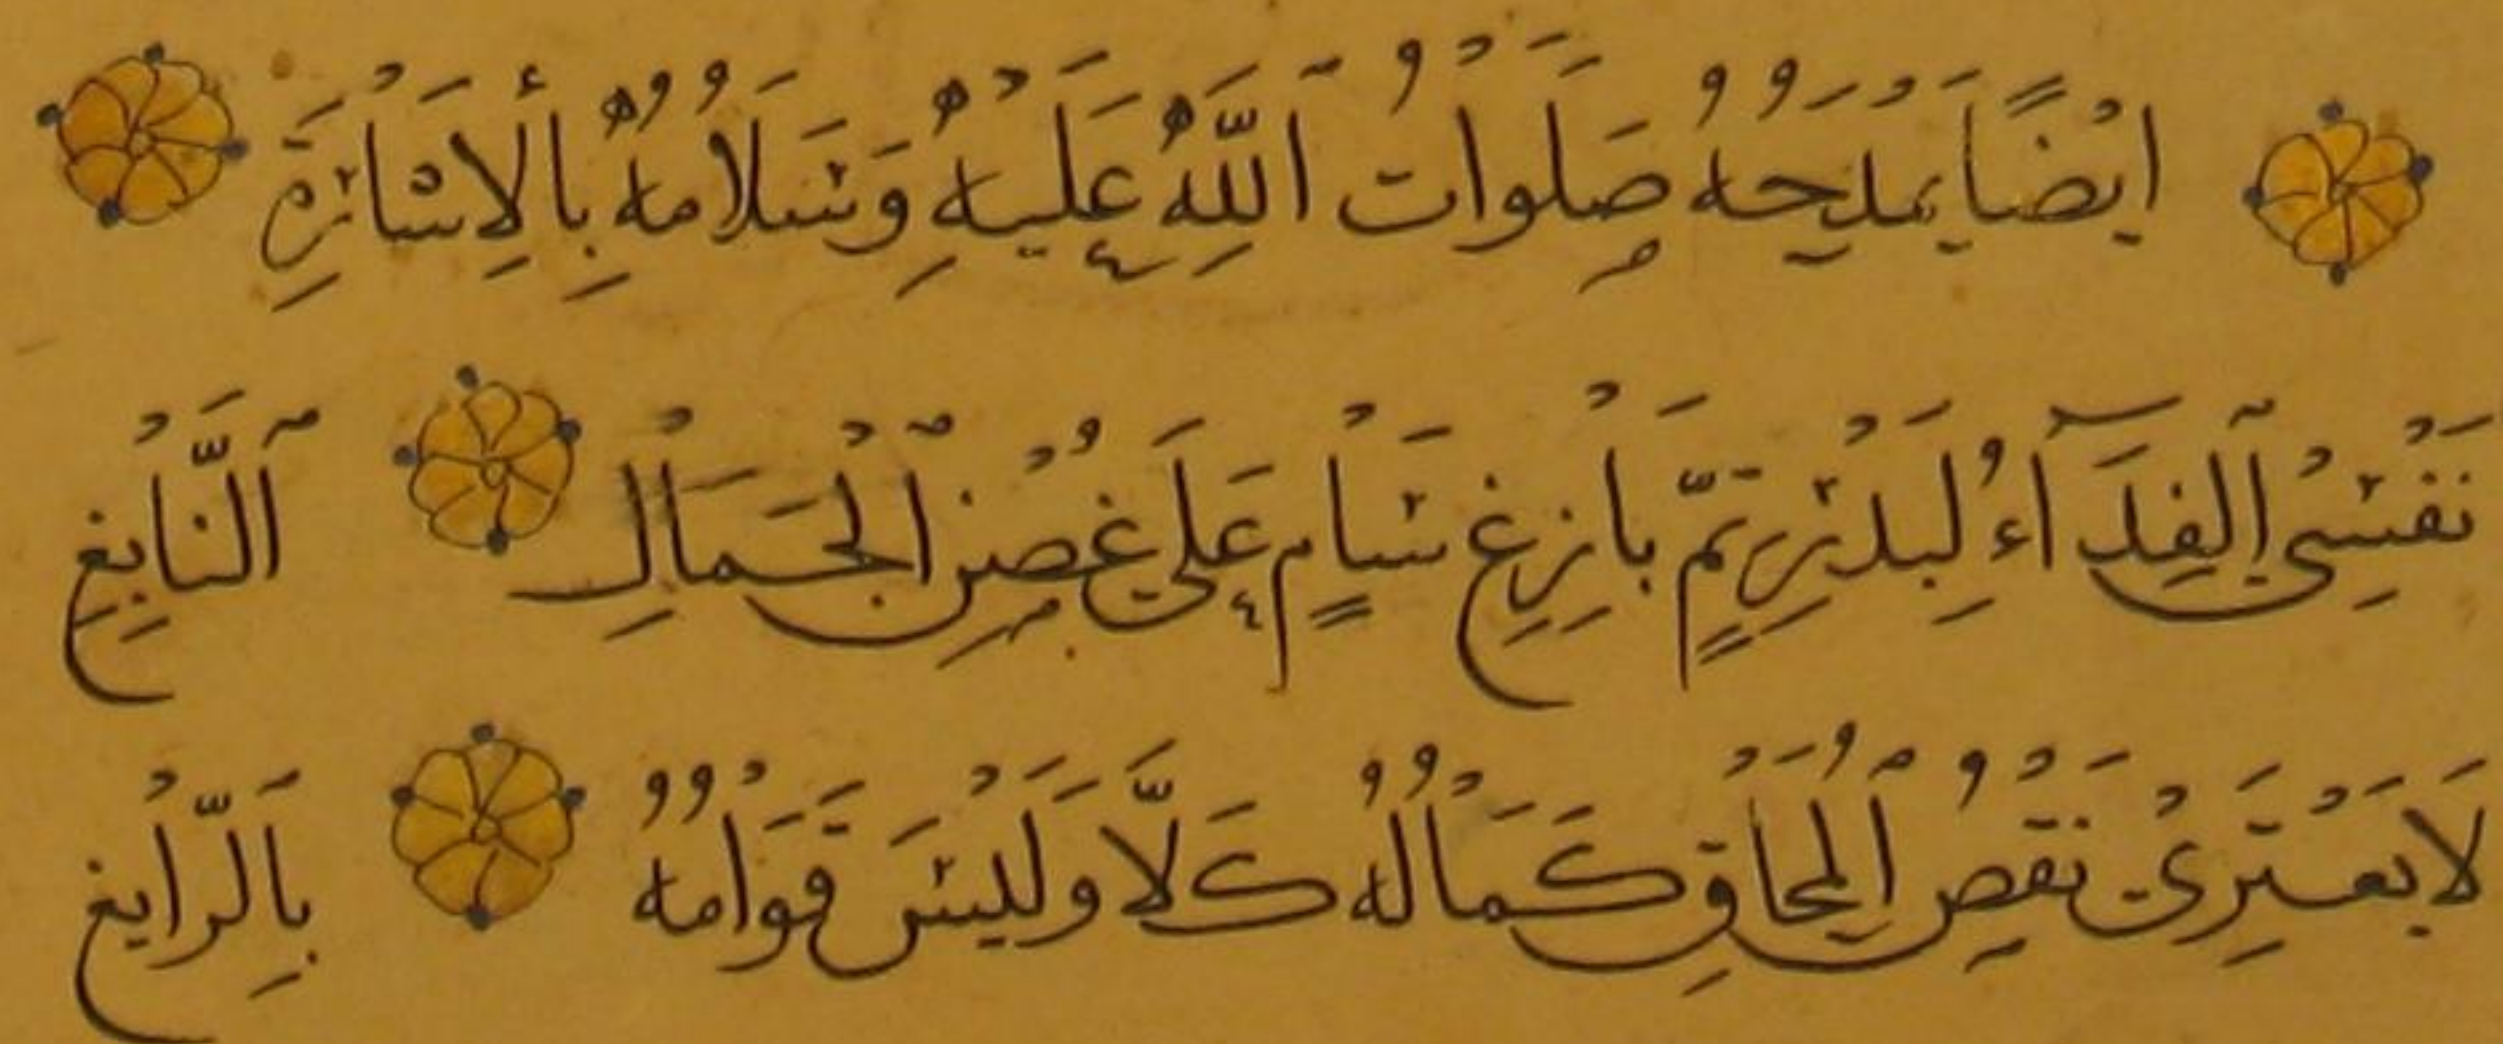 اَيْضًا يَمْدَحُهُ صَلَوَاتُ اللَّهِ عَلَيْهِ وَسَلَامُهُ بِالْاِشَارَةِ
نَفْسِي الْفِدَآءُ لِبَدْرِ تَمٍّ بَازِغِ سَامٍ عَلَى غُصْنِ الْجَمَالِ النَّابِغِ
لَا يَعْتَرِي نَقْصُ الْمِحَاقِ كَمَالُهُ كَلَّا وَلَيْسَ قَوَامُهُ بِالرَّايِغِ